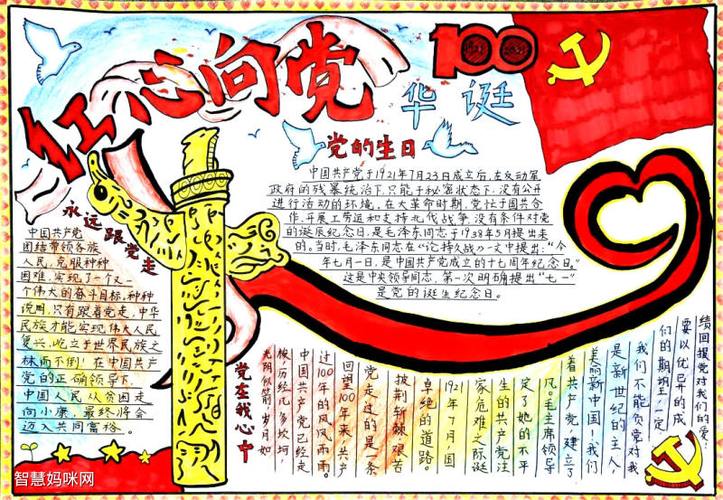 红心向党
100
华诞
党的生日
中国共产党于1921年7月23日成立后,在反动军
政府的残暴统治下,只能于秘密状态下,没有公开
进行活动的环境,在大革命时期,党忙于国共合
作,开展工农运和支持北伐战争,没有条件对党
的诞辰纪念日,是毛泽东同志于1938年5月提出来
的。当时,毛泽东同志在《论持久战》一文中提出:"今
年七月一日,是中国共产党成立的十七周年纪念日。"
这是中央领导同志,第一次明确提出"七一"
是党的诞生纪念日。
永远跟党走
中国共产党
团结带领各族
人民,克服种种
困难,实现了一个又一
个伟大的奋斗目标,种种
说明,只有跟着党走,中华
民族才能实现伟大人民
复兴,屹立于世界民族之
林而不倒!在中国共产
党的正确领导下,
中国人民从贫困走
向小康,最终将会
迈入共同富裕。
党在我心中
光阴似箭,岁月如
梭,历经几多坎坷,
中国共产党已经走
过100年的风风雨雨。
回望100年来,共产
党走过的是一条
披荆斩棘,艰苦
卓绝的道路。
年7月,国
家危难之际诞
生的共产党注
定了她的不平
凡。毛主席领导
着共产党建立了
美丽新中国!我们
是新世纪的主人,
我们不能负党对我
们的期望,一定
要以优异的成
绩回报党对我们的爱!
智慧妈咪网